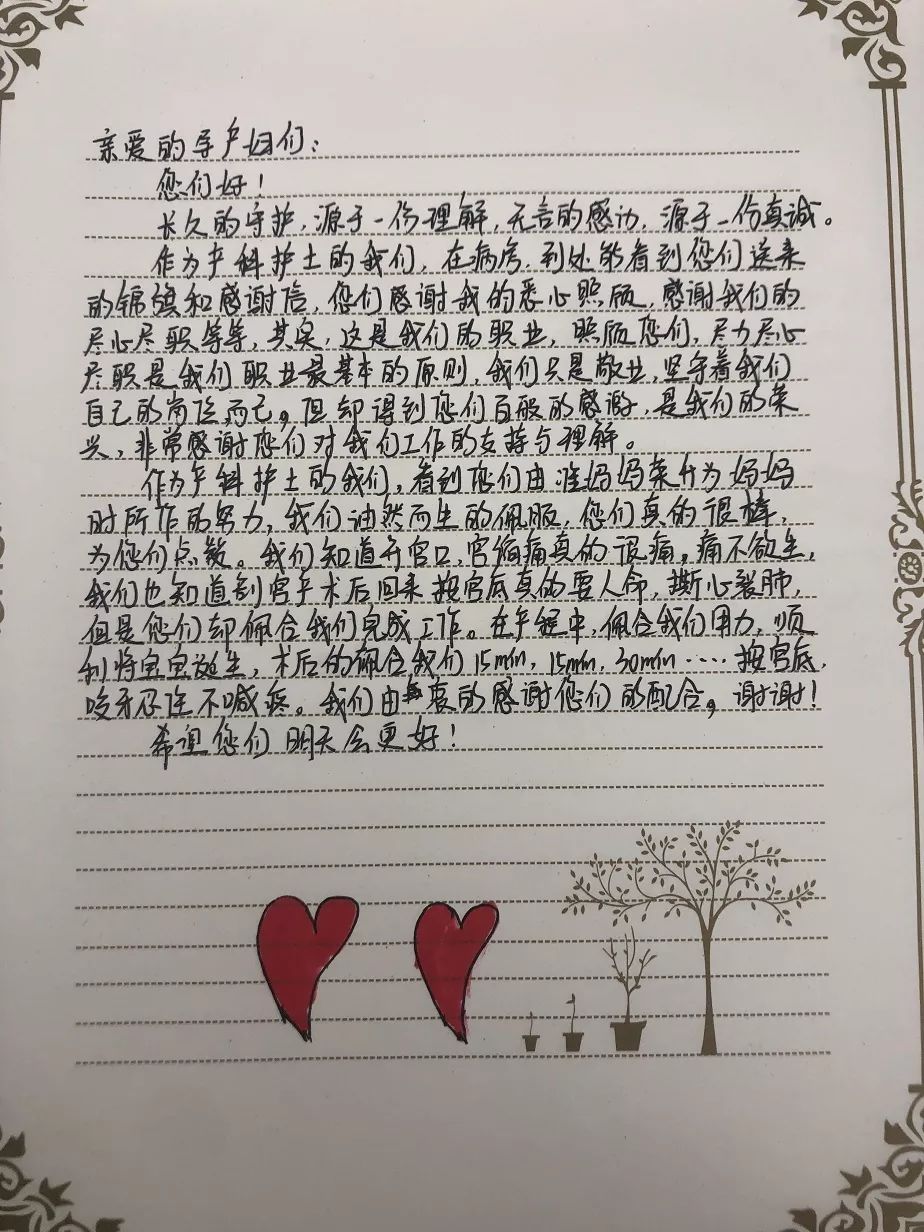 亲爱的孕产妇们：
您们好！
长久的守护，源于一份理解，无言的感动，源于一份真诚。
作为产科护士的我们，在病房，到处能看到您们送来
的锦旗和感谢信，您们感谢我的悉心照顾，感谢我们的
尽心尽职等等，其实，这是我们的职业，照顾您们，尽力尽心
尽职是我们职业最基本的原则，我们只是敬业，坚守着我们
自己的岗位而已。但却得到您们百般的感谢，是我们的荣
兴，非常感谢您们对我们工作的支持与理解。
作为产科护士的我们，看到您们由准妈妈荣升为妈妈
时所作的努力，我们油然而生的佩服，您们真的很棒，
为您们点赞。我们知道开宫口，宫缩痛真的很痛。痛不欲生，
我们也知道剖宫手术后回来按宫底真的要人命，撕心裂肺，
但是您们却佩合我们完成工作。在产程中，佩合我们用力，顺
利将宝宝诞生，术后的佩合我们15min，15min，30min……按宫底，
咬牙忍住不喊疼。我们由衷的感谢您们的配合。谢谢！
希望您们明天会更好！